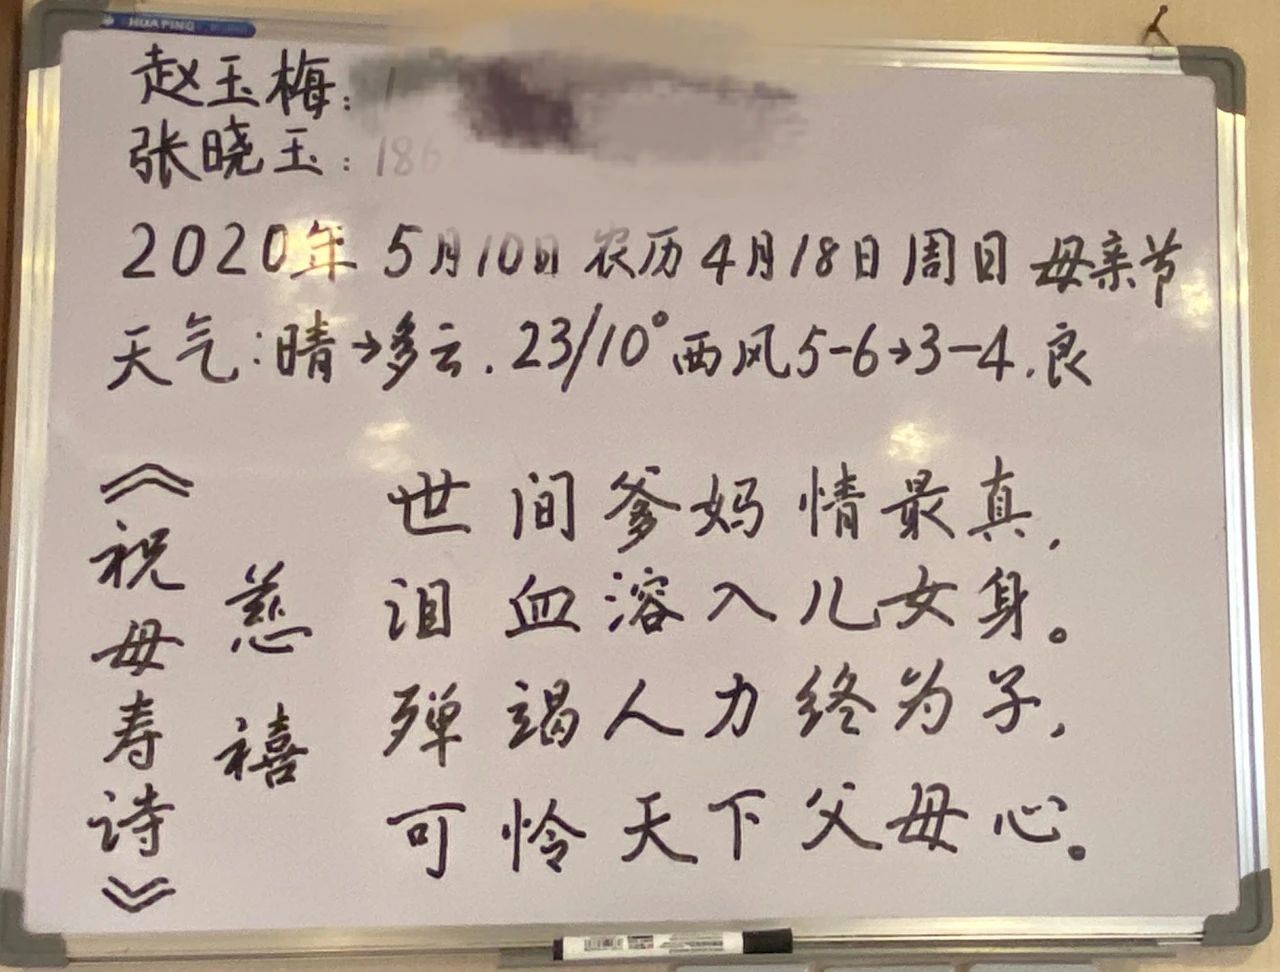 HUAPING
赵玉梅: 1
张晓玉: 186
2020年 5月10日 农历4月18日 周日 母亲节
天气:晴→多云. 23/10° 西风5-6→3-4.良
《祝母寿诗》
慈禧
世间爹妈情最真,
泪血溶入儿女身。
殚竭人力终为子,
可怜天下父母心。